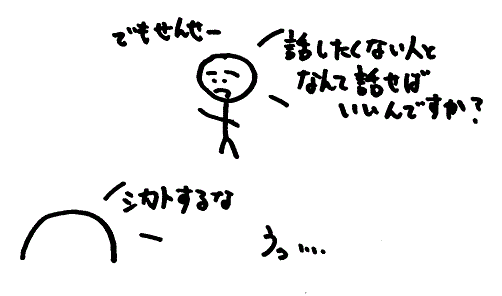 でもせんせー
話したくない人と
なんて話せば
いいんですか?
シカトするな
うっ....